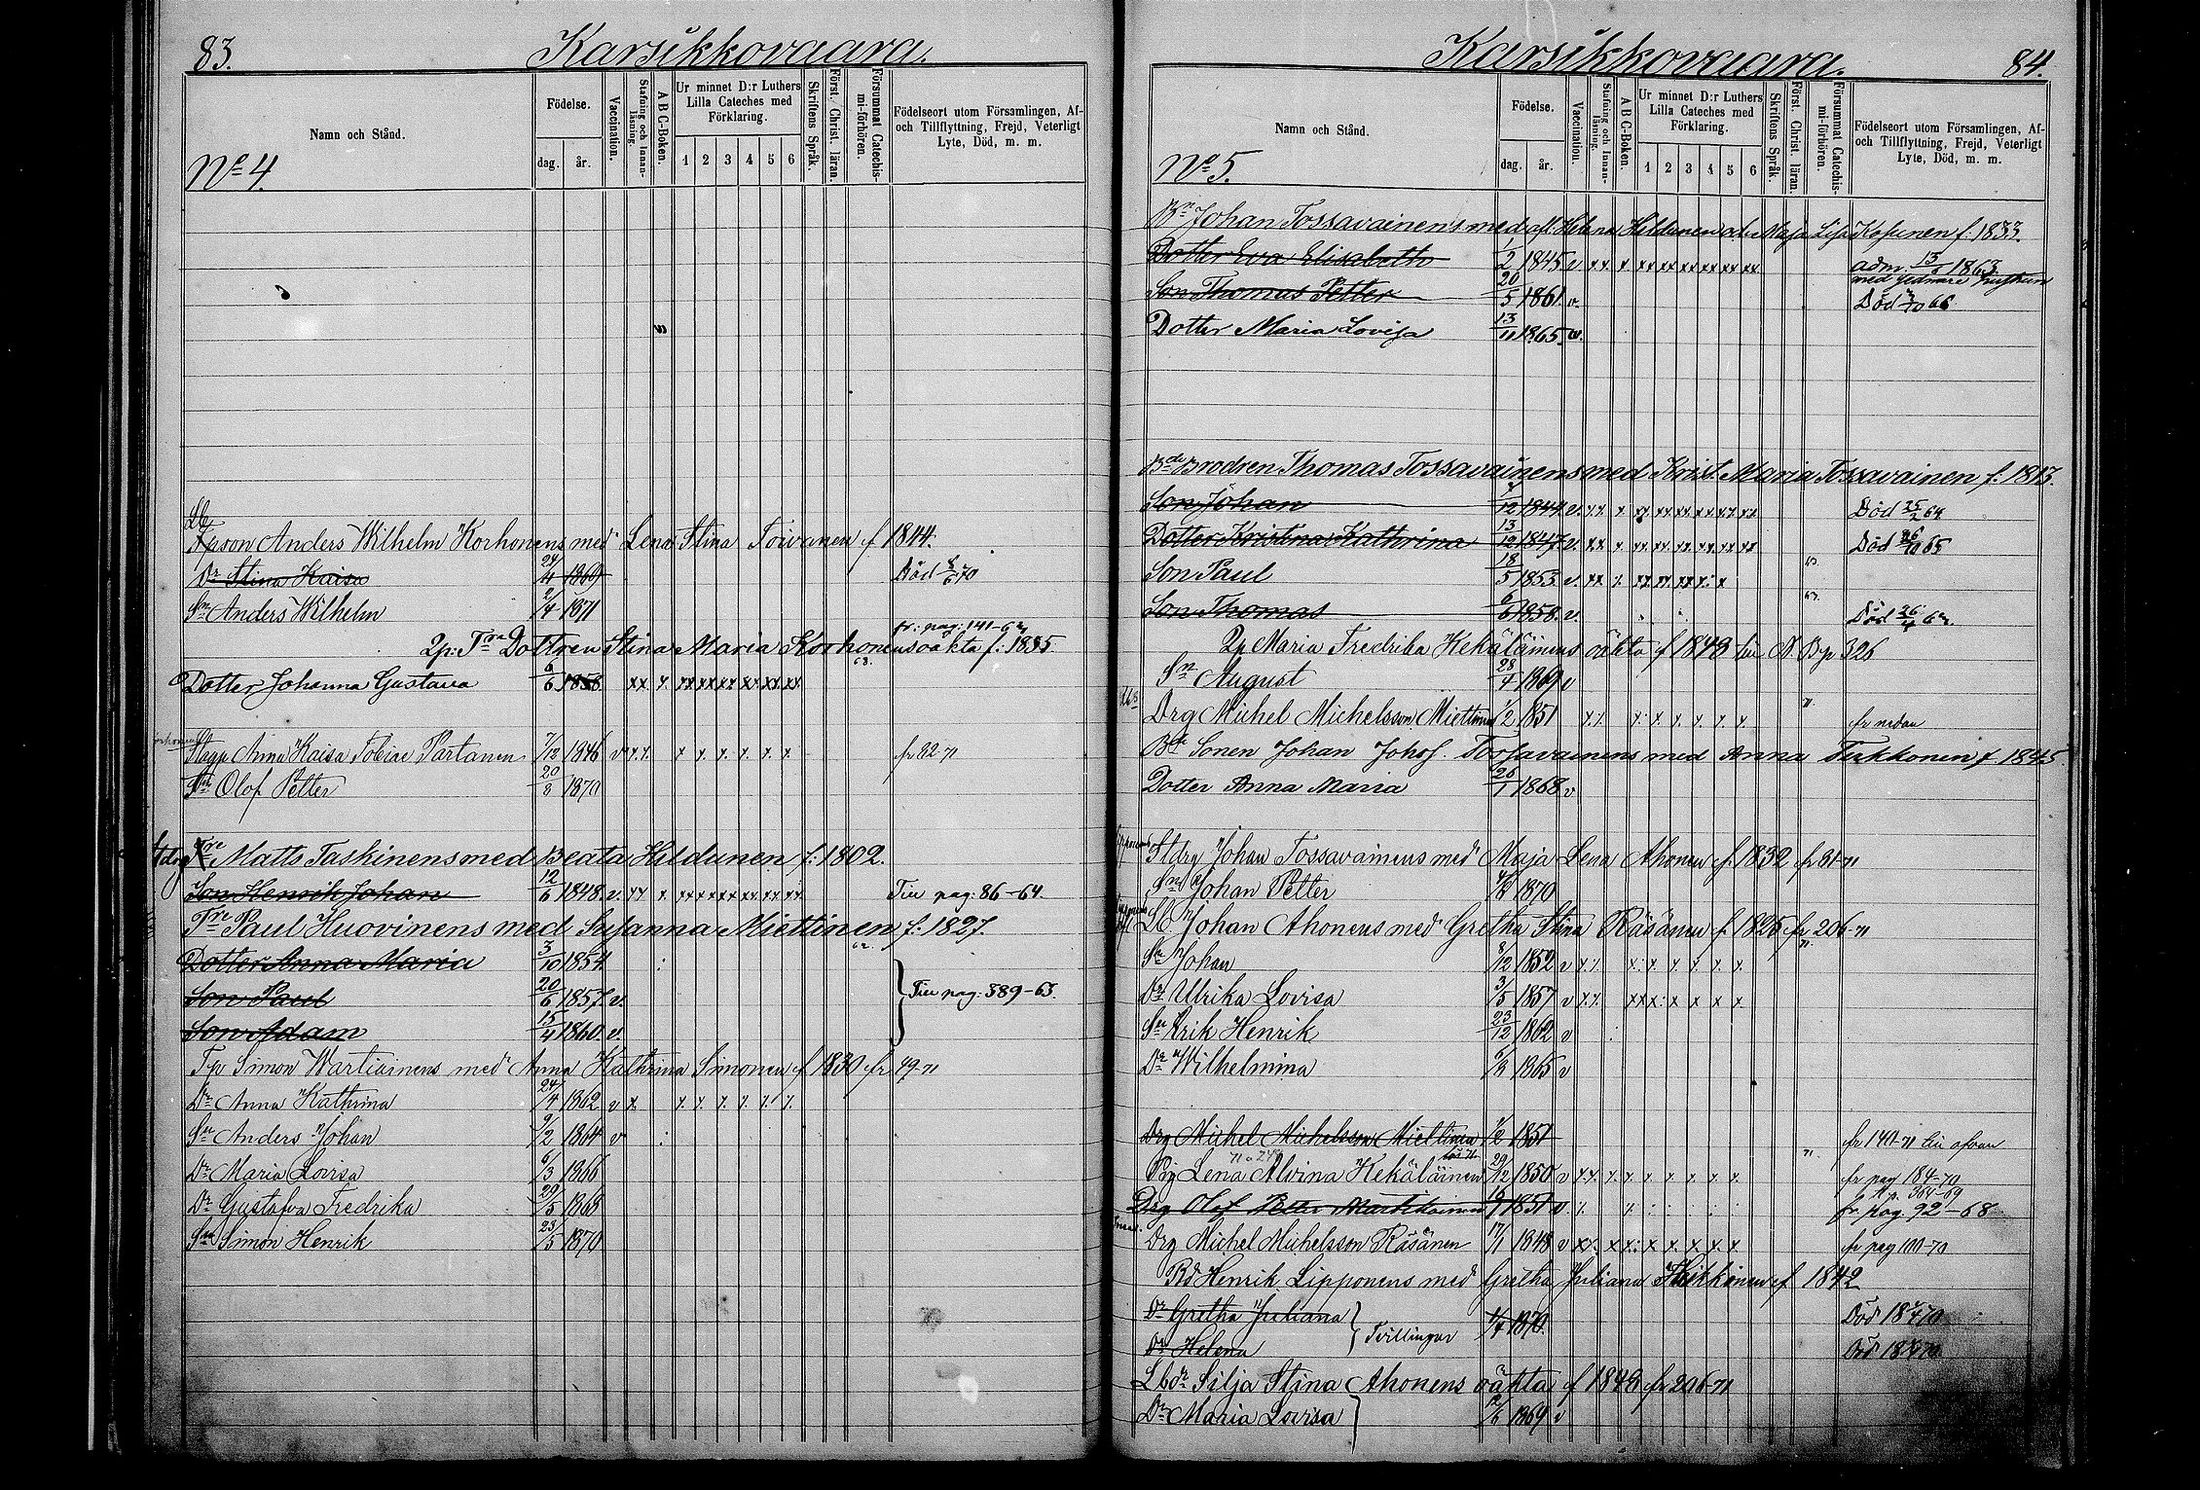 83.
Karsikkovaara.
Namn och Stånd.
Födelse.
dag.
år.
Vaccination.
Stafning och Innan-läsning.
A B C-Boken.
Ur minnet D:r Luthers
Lilla Cateches med
Förklaring.
1 2 3 4 5 6
Skriftens Språk.
Först. Christ. läran.
Försummat Catechis-
mi-förhören.
Födelseort utom Församlingen, Af-
och Tillflyttning, Frejd, Veterligt
Lyte, Död, m. m.
No 4.
Anders Wilhelm Korhonens med Lena Stina Toivanen f 1844.
Dr Stina Kaisa 24/4 1869 Död 8/6 70
Sn Anders Wilhelm 2/4 1871
fr: pag: 141-63
2p: Tre Dottren Stina Maria Korhonens oäkta f: 1835.
63.
Dotter Johanna Gustava 6/6 1858 xx x. xx xx xx xx xx xx
Anna Kaisa Tobiae Partanen 7/12 1846 v x.x. x x. x. x. x. x. fr 82-71
Sn Olof Petter 20/8 1870
Tre Matts Taskinens med Beata Hildunen f: 1802.
Son Henrik Johan 12/6 1848. v. xx x. xx xx xx xx xx xx Tier pag: 86-64.
Tre Paul Huovinens med Susanna Miettinen f: 1827.
62.
Dotter Anna Maria 3/10 1854
Son Paul 20/6 1857. v. Tier pag: 389-63.
Son Adam 15/4 1860. v.
Simon Wartiainens med Anna Kathrina Simonen f 1830 fr 49-71
Dr Anna Kathrina 24/4 1862 v x x. x. x. x. x. x.
Sn Anders Johan 9/2 1864 v
Dr Maria Lovisa 6/3 1866
Dr Gustafva Fredrika 29/5 1868
Sn Simon Henrik 23/5 1870
Karsikkovaara.
84.
Namn och Stånd.
Födelse.
dag.
år.
Vaccination.
Stafning och Innan-läsning.
A B C-Boken.
Ur minnet D:r Luthers
Lilla Cateches med
Förklaring.
1 2 3 4 5 6
Skriftens Språk.
Först. Christ. läran.
Försummat Catechis-
mi-förhören.
Födelseort utom Församlingen, Af-
och Tillflyttning, Frejd, Veterligt
Lyte, Död, m. m.
No 5.
Bn Johan Tossavainens med afl. Helena Hildunen och Maja Lisa Kosunen f. 1833.
Dotter Eva Elisabeth 1/2 1845 v xx x xx xx xx xx xx xx adm. 13/6 1863
Son Thomas Petter 20/5 1861 v. Död 2/10 66
Dotter Maria Lovisa 13/11 1865. v.
Bde Brodren Thomas Tossavainens med Krist. Maria Tossavainen f: 1813.
Son Johan 1844 v. xx x xx xx xx xx xx xx Död 25/2 64
Dotter Kristina Kathrina 13/12 1847. v. xx x xx xx xx xx xx xx Död 26/10 65
Son Paul 18/5 1853 v. xx x xx xx xx x x
63.
Son Thomas 6/6 1858. v. Död 26/4 62
2p Maria Fredrika Hekäläinens oäkta f 1843 326
Sn August 28/4 1869 v
Drg Michel Michelsson Miettinen 1/2 1851 x.x. x. x x. x. x. x. 71. fr nedan
Sonen Johan Johss. Tossavainens med Anna Tukkonen f 1845
Dotter Anna Maria 26/1 1868 v
Stdrg Johan Tossavainens med Maja Lena Ahonen f. 1832 fr 81-71
Sn Johan Petter 1870
Lb Johan Ahonens med Gretha Stina Räsänen f 1825 fr 206-71
Sn Johan 8/12 1852 v x.x. x. x x. x x x. 71.
Dr Ulrika Lovisa 3/5 1857 v x.x. x x x x x x
Sn Erik Henrik 23/12 1862 v
Dr Wilhelmina 6/8 1865 v
Drg Michel Michelsson Miettinen 1/2 1851 fr 140-71
Pig Lena Alvina Hekäläinen 29/12 1850 v x.x. x. x x x x x x 71. fr pag 184-70
Drg Olof Petter 1851 v x. x. fr pag 92-68
Drg Michel Michelsson Räsänen 17/1 1848 v x x. x x. x x. x. x. x fr pag 100-70
Henrik Lipponens med Gretha Juliana f 1842
Dr Gretha Juliana
Dr Helena
Tvillingar 1870.
Död 18
Död 18
Silja Stina Ahonens oäkta f 1843 fr 206-71
Dr Maria Lovisa 1869 v